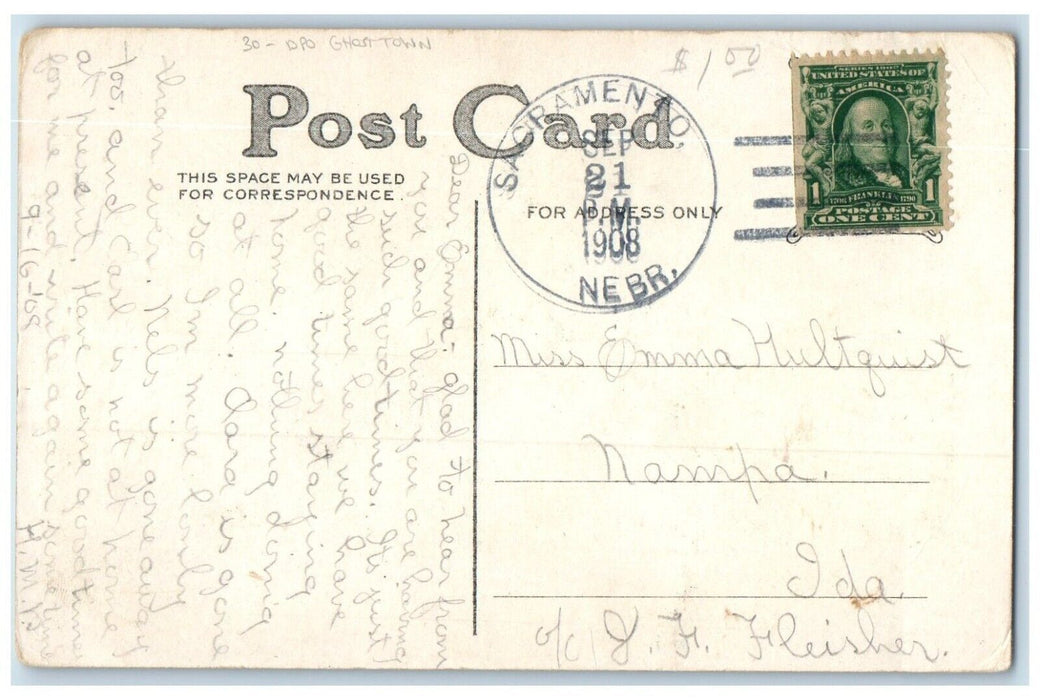 30 - DPO GHOST TOWN
$1.00
Post Card
THIS SPACE MAY BE USED
FOR CORRESPONDENCE.
FOR ADDRESS ONLY
SACRAMENTO,
SEP
21
P.M.
1908
NEBR.
SERIES 1902
UNITED STATES OF
AMERICA
1 1
1706 FRANKLIN 1790
POSTAGE
ONE CENT
Miss Emma Hultquist
Nampa.
Ida.
c/o J. F. Fleisher.
Dear Emma:- Glad to hear from
you and that you are having
such good times. It's just
the same here we have
good times staying
home, nothing doing
at all. Clara is gone
so I'm more lonly
than ever. Nels is gone away
too, and Carl is not at home
at present. Have some good times
for me and write again sometime
9-16-'08. H.M.P.